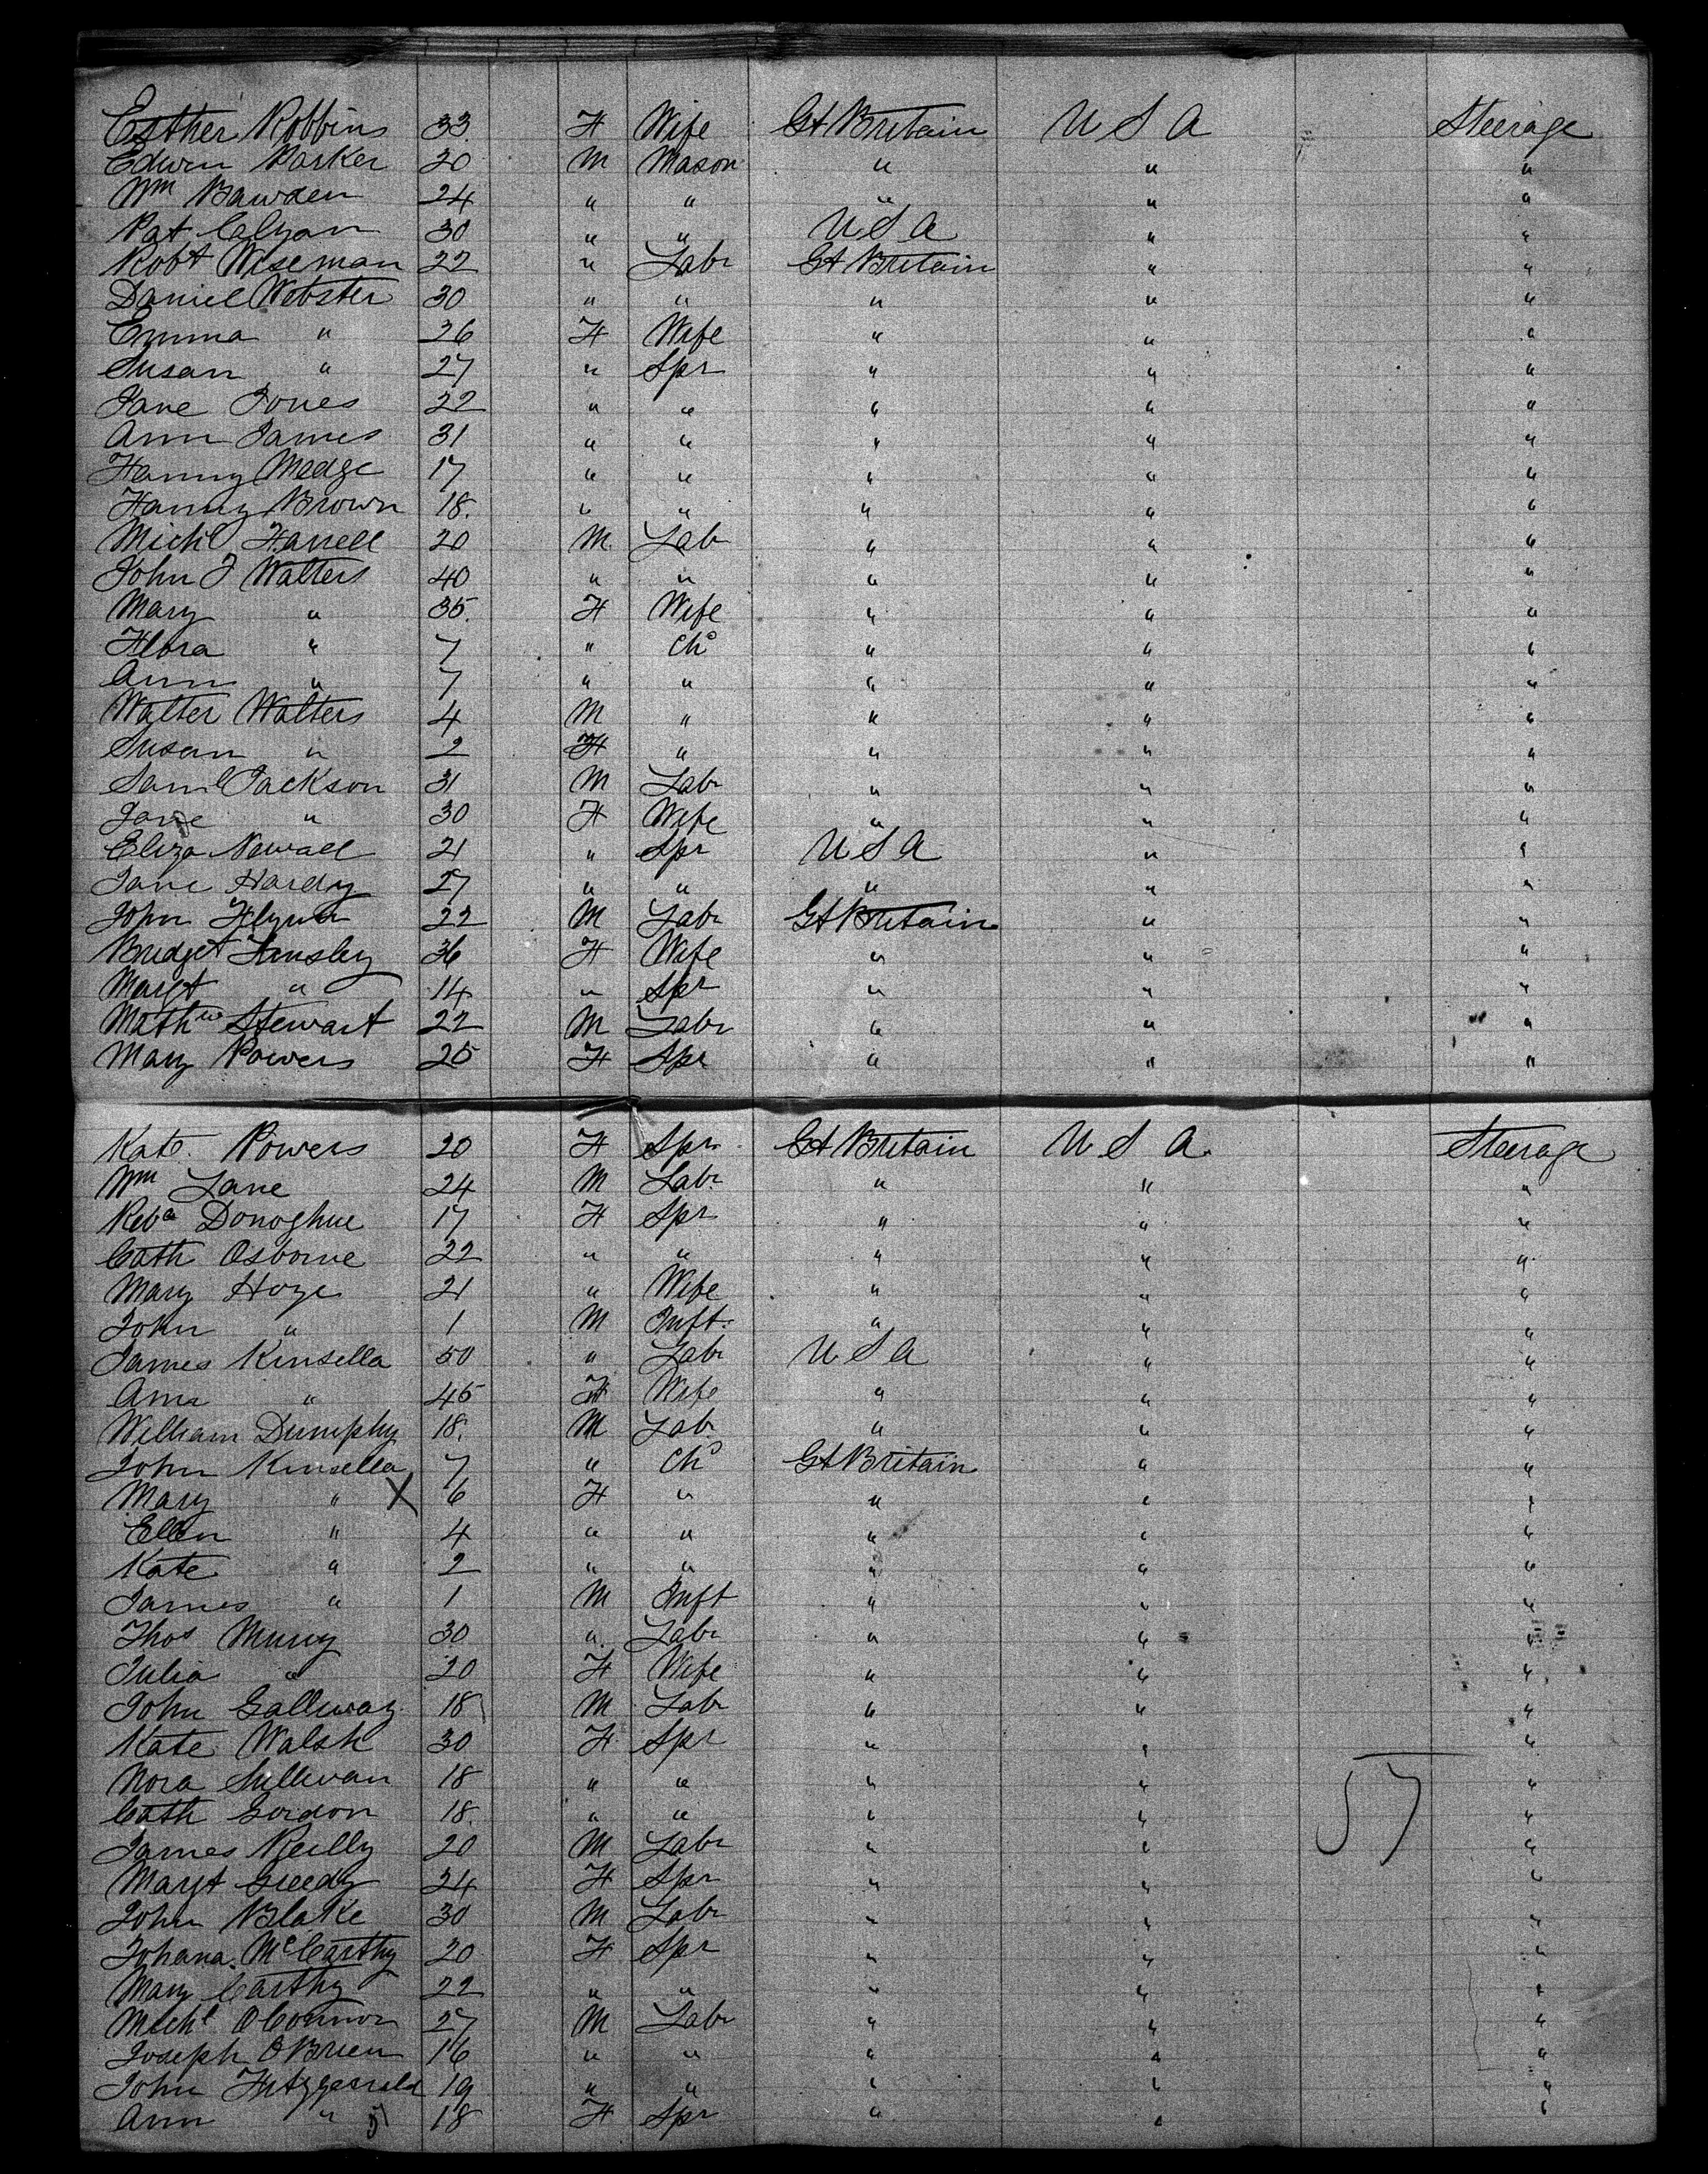 Esther Robbins 33 F Wife Gt Britain U S A Steerage
Edwin Parker 20 M Mason " " "
Wm Bawden 24 " " " " "
Pat Calyan 30 " " U S A " "
Robt Wiseman 22 " Labr Gt Britain " "
Daniel Webster 30 " " " " "
Emma " 26 F Wife " " "
Susan " 27 " Spr " " "
Jane Jones 22 " " " " "
Ann James 31 " " " " "
Fanny Madge 17 " " " " "
Fanny Brown 18. " " " " "
Michl Farrell 20 M. Lab " " "
John J Walters 40 " " " " "
Mary " 35. F Wife " " "
Flora " 7 " Chd " " "
Ann " 7 " " " " "
Walter Walters 4 M " " " "
Susan " 2 F " " " "
Saml Jackson 31 M Labr " " "
Jane " 30 F Wife " " "
Eliza Newall 21 " Spr U S A " "
Jane Hardy 27 " " " " "
John Flynn 22 M Labr Gt Britain " "
Bridget 36 F Wife " " "
Margt " 14 " Spr " " "
Mathw Stewart 22 M Labr " " "
Mary Powers 25 F Spr " " "
Kate Powers 20 F Spr Gt Britain U S A. Steerage
Wm Lane 24 M Labr " " "
Reba Donoghue 17 F Spr " " "
Cath Osborne 22 " " " " "
Mary Hoye 21 " Wife " " "
John " 1 M Inft. " " "
James Kinsella 50 " Labr U S A " "
Ann " 45 F Wife " " "
William Dumphy 18. M Lab. " " "
John Kinsella 7 " Chd Gt Britain " "
Mary " X 6 F " " " "
Ellen " 4 " " " " "
Kate " 2 " " " " "
James " 1 M Inft " " "
Thos 30 " Labr " " "
Julia " 20 F Wife " " "
John Gallway 18 M Labr " " "
Kate Walsh 30 F Spr " " "
Nora Sullivan 18 " " " " "
Cath Gordon 18. " " " " "
57
James Reilly 20 M Labr " " "
Margt 24 F Spr " " "
John Blake 30 M Labr " " "
Johana McCarthy 20 F Spr " " "
Mary Carthy 22 " " " " "
Michl OConnor 27 M Labr " " "
Joseph OBrien 16 " " " " "
John Fitzgerald 19 " " " " "
Ann " 57 18 F Spr " " "